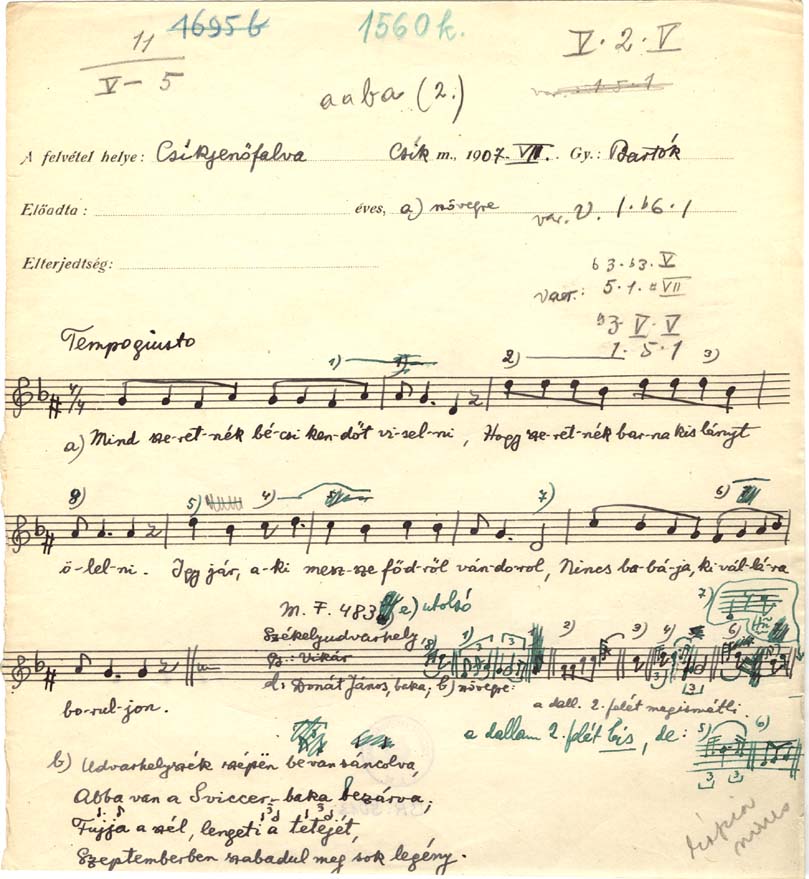 11
V- 5
1695 b
1560 k.
V. 2. V
var. 1 5 1
aaba (2.)
A felvétel helye: Csíkjenőfalva Csík m., 1907. VII. Gy.: Bartók
Előadta: éves, a) nővegre var. V. 1. b6. 1
Elterjedtség: b3. b3. V
var.: 5. 1. #VII
b3. V. V
1. 5. 1
Tempo giusto
1) 2) 3)
a) Mind sze-ret-nék bé-csi ken-dőt vi-sel-ni, Hogy sze-ret-nék bar-na kis lányt
8) 5) 4) 7) 6)
ö-lel-ni. Igy jár, a-ki mesz-sze főd-ről ván-do-rol, Nincs ba-bá-ja, ki vál-lá-ra
M. F. 483 e) utolsó
Székelyudvarhely,
Gy.: Vikár
d: Donát János, baka; b) nővegre:
8) 1) 2) 3) 4) 6) 7)
bo-rul-jon.
a dall. 2. felét megismétli.
a dallam 2. felét bis, de: 5) 6)
b) Udvarhelyszék szépën be van sáncolva,
Abba van a Sviccer-baka bezárva;
Fujja a szél, lengeti a tetejét,
Szeptemberben szabadul meg sok legény.